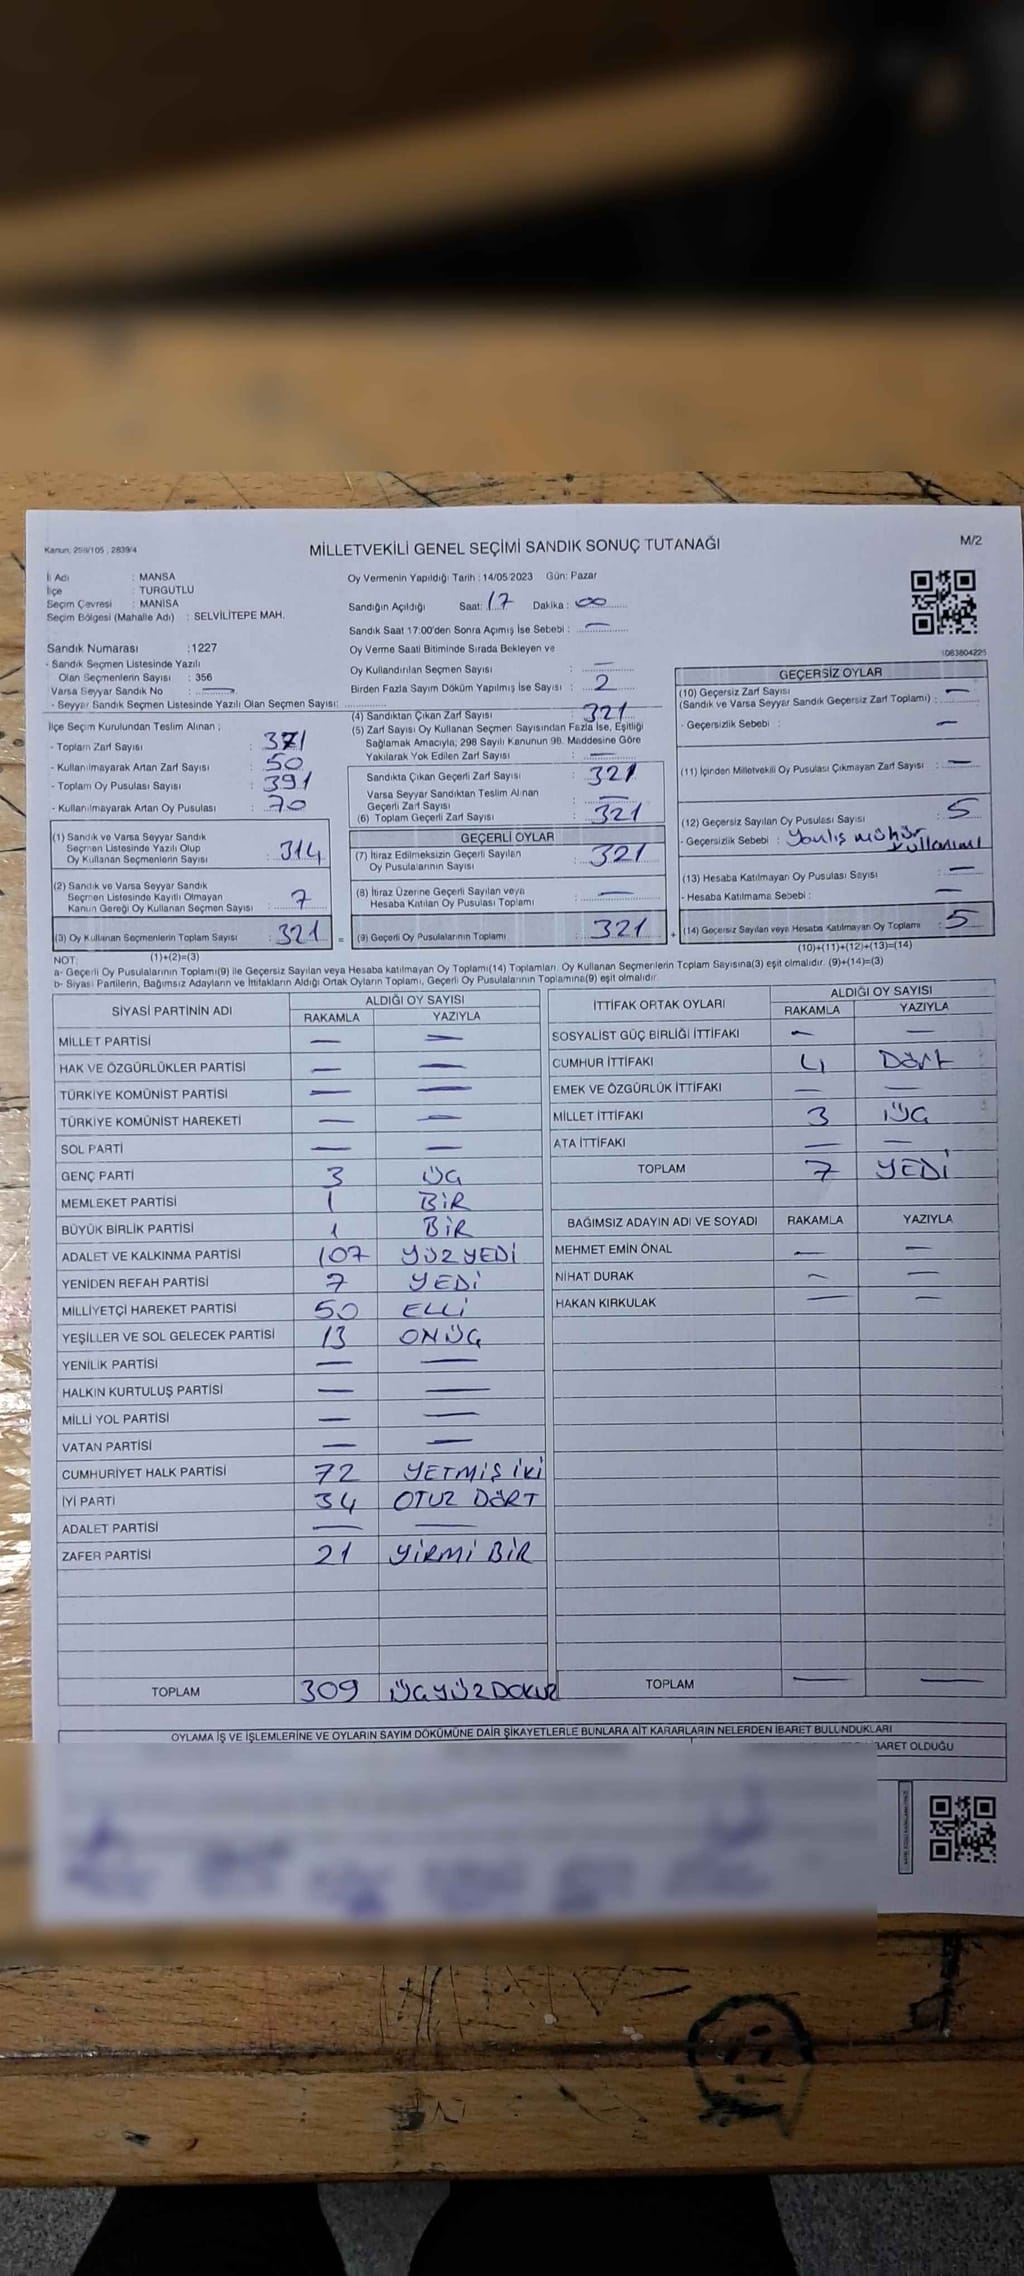 Kanun: 298/105 ; 2839/4
MİLLETVEKİLİ GENEL SEÇİMİ SANDIK SONUÇ TUTANAĞI
M/2
İl Adı : MANİSA
İlçe : TURGUTLU
Seçim Çevresi : MANİSA
Seçim Bölgesi (Mahalle Adı) : SELVİLİTEPE MAH.
Sandık Numarası : 1227
- Sandık Seçmen Listesinde Yazılı
Olan Seçmenlerin Sayısı : 356
Varsa Seyyar Sandık No : —
- Seyyar Sandık Seçmen Listesinde Yazılı Olan Seçmen Sayısı:
Oy Vermenin Yapıldığı: Tarih : 14/05/2023 Gün: Pazar
Sandığın Açıldığı Saat: 17 Dakika : 00
Sandık Saat 17:00'den Sonra Açımış İse Sebebi : —
Oy Verme Saati Bitiminde Sırada Bekleyen ve
Oy Kullandırılan Seçmen Sayısı : —
Birden Fazla Sayım Döküm Yapılmış İse Sayısı : 2
1083804225
İlçe Seçim Kurulundan Teslim Alınan ;
- Toplam Zarf Sayısı : 371
- Kullanılmayarak Artan Zarf Sayısı : 50
- Toplam Oy Pusulası Sayısı : 391
- Kullanılmayarak Artan Oy Pusulası : 70
(1) Sandık ve Varsa Seyyar Sandık
Seçmen Listesinde Yazılı Olup
Oy Kullanan Seçmenlerin Sayısı : 314
(2) Sandık ve Varsa Seyyar Sandık
Seçmen Listesinde Kayıtlı Olmayan
Kanun Gereği Oy Kullanan Seçmen Sayısı : 7
(3) Oy Kullanan Seçmenlerin Toplam Sayısı : 321
(1)+(2)=(3)
(4) Sandıktan Çıkan Zarf Sayısı : 321
(5) Zarf Sayısı Oy Kullanan Seçmen Sayısından Fazla İse, Eşitliği
Sağlamak Amacıyla; 298 Sayılı Kanunun 98. Maddesine Göre
Yakılarak Yok Edilen Zarf Sayısı : —
Sandıkta Çıkan Geçerli Zarf Sayısı : 321
Varsa Seyyar Sandıktan Teslim Alınan
Geçerli Zarf Sayısı : —
(6) Toplam Geçerli Zarf Sayısı : 321
GEÇERLİ OYLAR
(7) İtiraz Edilmeksizin Geçerli Sayılan
Oy Pusulalarının Sayısı : 321
(8) İtiraz Üzerine Geçerli Sayılan veya
Hesaba Katılan Oy Pusulası Toplamı : —
= (9) Geçerli Oy Pusulalarının Toplamı : 321 +
GEÇERSİZ OYLAR
(10) Geçersiz Zarf Sayısı
(Sandık ve Varsa Seyyar Sandık Geçersiz Zarf Toplamı) : —
- Geçersizlik Sebebi : —
(11) İçinden Milletvekili Oy Pusulası Çıkmayan Zarf Sayısı : —
(12) Geçersiz Sayılan Oy Pusulası Sayısı : 5
- Geçersizlik Sebebi : Yanlış mühür
kullanımı
(13) Hesaba Katılmayan Oy Pusulası Sayısı : —
- Hesaba Katılmama Sebebi : —
(14) Geçersiz Sayılan veya Hesaba Katılmayan Oy Toplamı : 5
(10)+(11)+(12)+(13)=(14)
NOT:
a- Geçerli Oy Pusulalarının Toplamı(9) ile Geçersiz Sayılan veya Hesaba katılmayan Oy Toplamı(14) Toplamları, Oy Kullanan Seçmenlerin Toplam Sayısına(3) eşit olmalıdır. (9)+(14)=(3)
b- Siyasi Partilerin, Bağımsız Adayların ve İttifakların Aldığı Ortak Oyların Toplamı, Geçerli Oy Pusulalarının Toplamına(9) eşit olmalıdır.
SİYASİ PARTİNİN ADI ALDIĞI OY SAYISI
RAKAMLA YAZIYLA
MİLLET PARTİSİ — —
HAK VE ÖZGÜRLÜKLER PARTİSİ — —
TÜRKİYE KOMÜNİST PARTİSİ — —
TÜRKİYE KOMÜNİST HAREKETİ — —
SOL PARTİ — —
GENÇ PARTİ 3 ÜÇ
MEMLEKET PARTİSİ 1 BİR
BÜYÜK BİRLİK PARTİSİ 1 BİR
ADALET VE KALKINMA PARTİSİ 107 YÜZ YEDİ
YENİDEN REFAH PARTİSİ 7 YEDİ
MİLLİYETÇİ HAREKET PARTİSİ 50 ELLİ
YEŞİLLER VE SOL GELECEK PARTİSİ 13 ONÜÇ
YENİLİK PARTİSİ — —
HALKIN KURTULUŞ PARTİSİ — —
MİLLİ YOL PARTİSİ — —
VATAN PARTİSİ — —
CUMHURİYET HALK PARTİSİ 72 YETMİŞ İKİ
İYİ PARTİ 34 OTUZ DÖRT
ADALET PARTİSİ — —
ZAFER PARTİSİ 21 YİRMİ BİR
TOPLAM 309 ÜÇYÜZDOKUZ
İTTİFAK ORTAK OYLARI ALDIĞI OY SAYISI
RAKAMLA YAZIYLA
SOSYALİST GÜÇ BİRLİĞİ İTTİFAKI — —
CUMHUR İTTİFAKI 4 Dört
EMEK VE ÖZGÜRLÜK İTTİFAKI — —
MİLLET İTTİFAKI 3 ÜÇ
ATA İTTİFAKI — —
TOPLAM 7 YEDİ
BAĞIMSIZ ADAYIN ADI VE SOYADI RAKAMLA YAZIYLA
MEHMET EMİN ÖNAL — —
NİHAT DURAK — —
HAKAN KIRKULAK — —
TOPLAM — —
OYLAMA İŞ VE İŞLEMLERİNE VE OYLARIN SAYIM DÖKÜMÜNE DAİR ŞİKAYETLERLE BUNLARA AİT KARARLARIN NELERDEN İBARET BULUNDUKLARI
BARET OLDUĞU